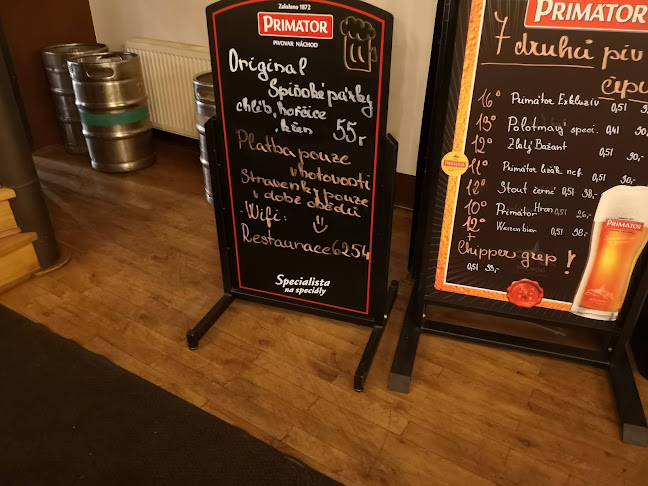 Založeno 1872
PRIMÁTOR
PIVOVAR NÁCHOD
Original
Spišské párky
chléb, hořčice
křen 55,-
Platba pouze
v hotovosti
Stravenky pouze
v době obědů
Wifi:
Restaurace6254
Specialista
na speciály
PRIMÁTOR
7 druhů piv
čepu
16° Primátor Exkluziv 0,5l
13° Polotmavý speci. 0,4l 30,-
12° Zlatý Bažant 0,5l 30,-
11° Primátor ležák nef. 0,5l 30,-
12° Stout černé 0,5l 38,-
10° Primátor Hron 0,5l 26,-
12° Weizenbier 0,5l 38,-
+
Chipper grep !
0,5l 33,-
PRIMÁTOR